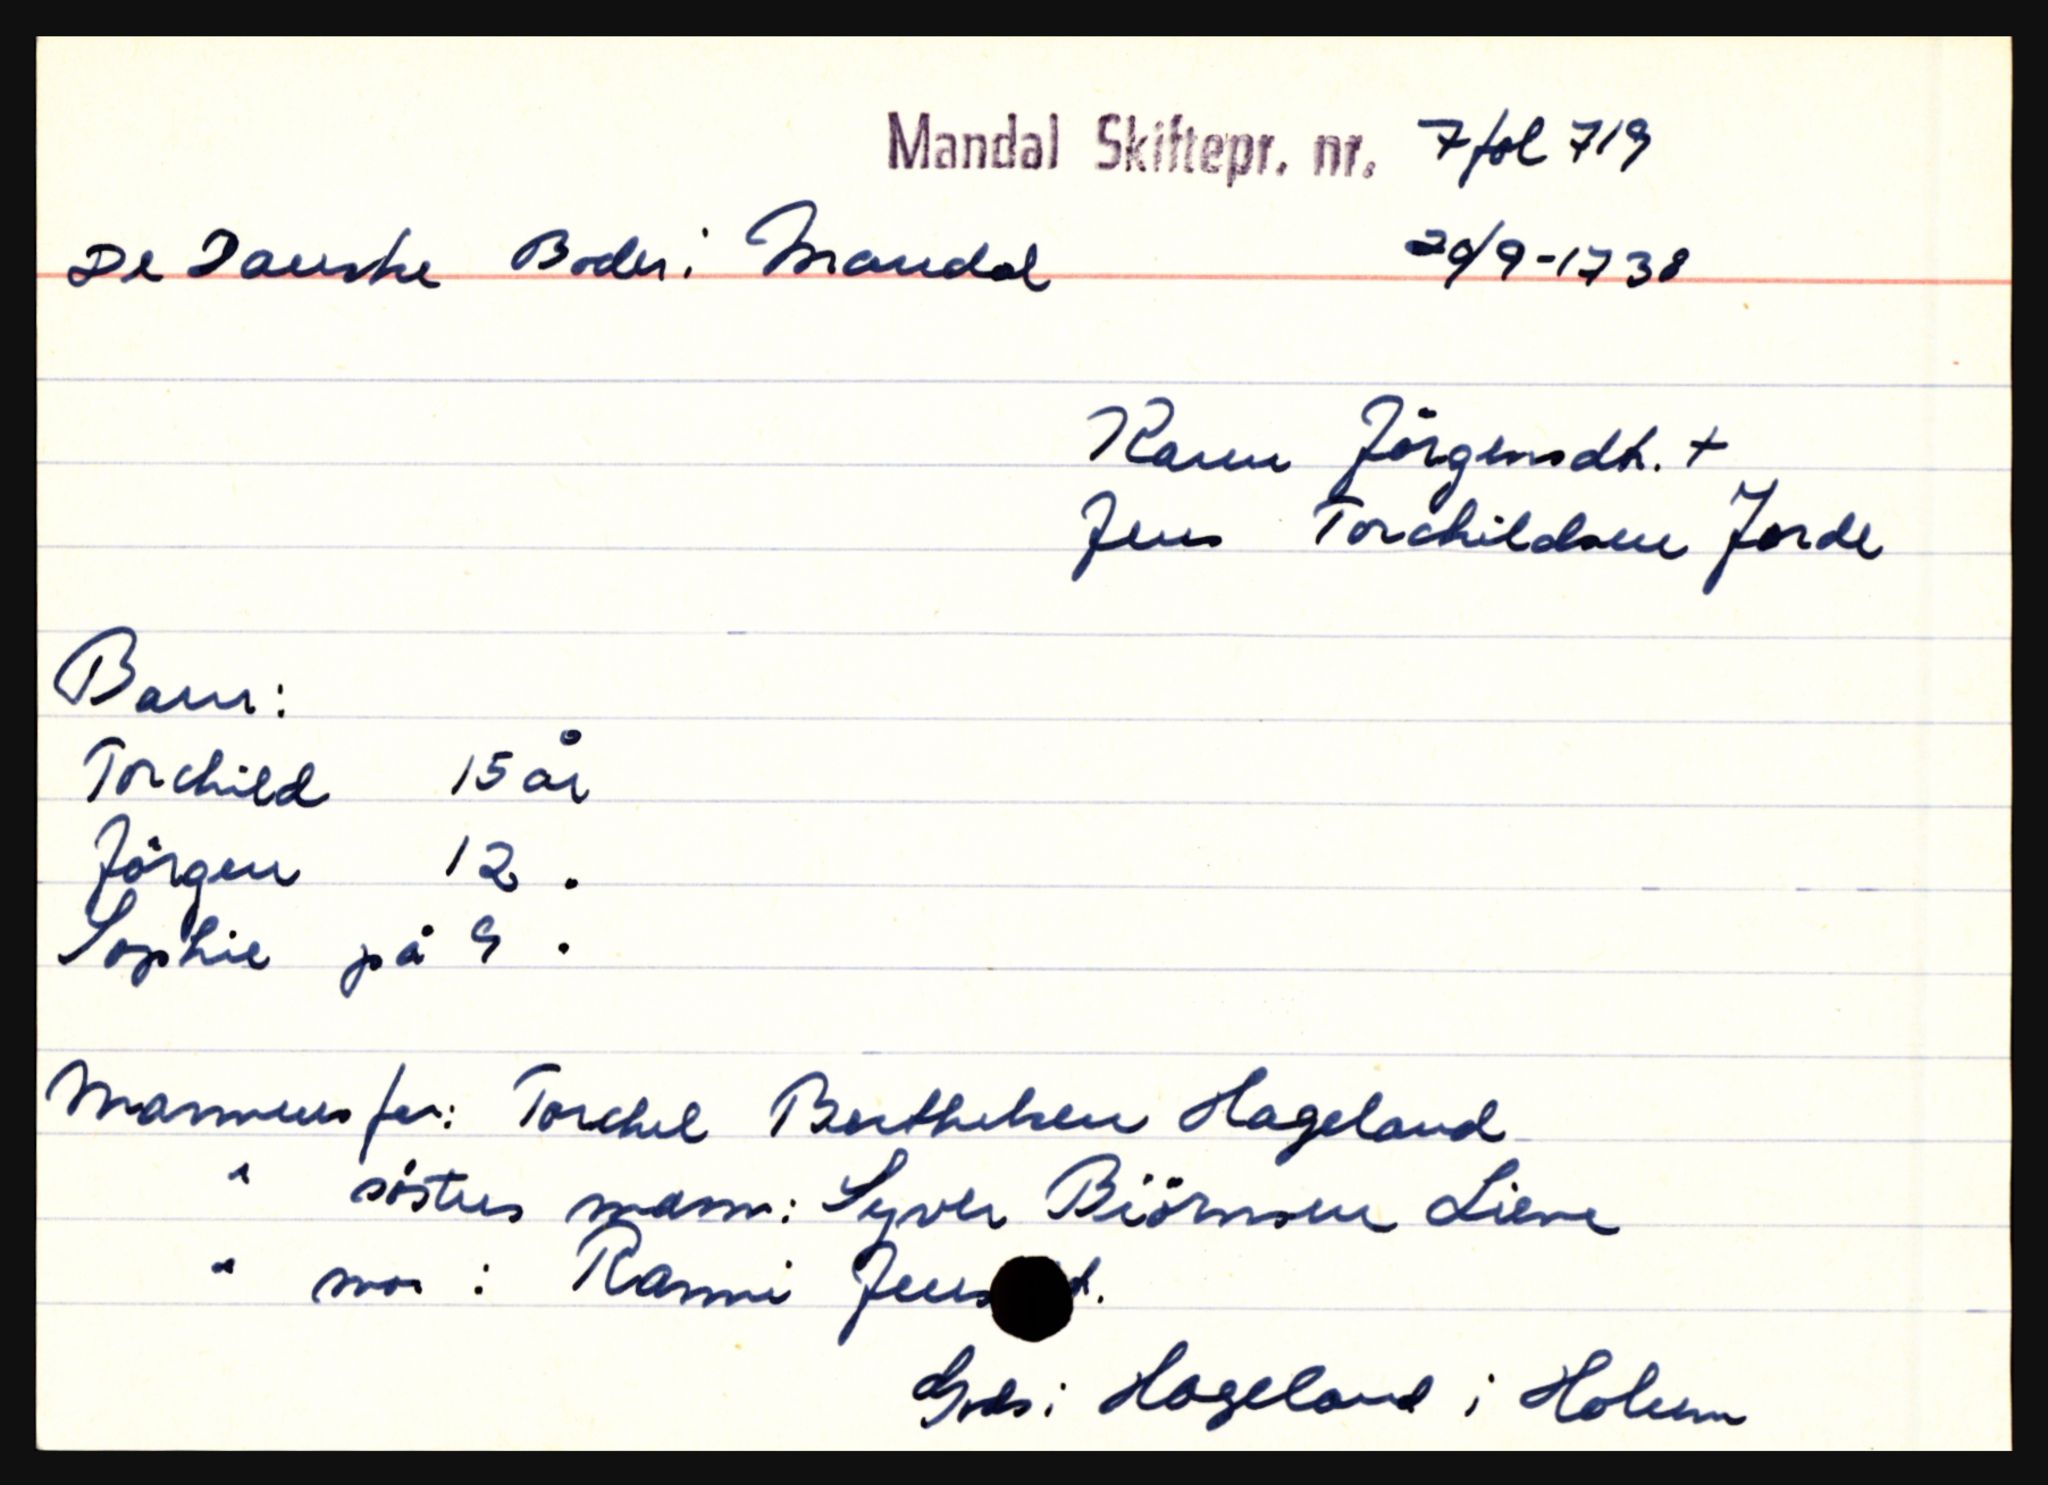 Mandal Skiftepr. nr. 7 fol 719
De Danske Boder i Mandal 29/9-1738
Karen Jörgensdt. +
Jens Torchildsen Jorde
Barn:
Torchild 15 år
Jörgen 12 "
Sophie på 9 "
Mannens far: Torchel Berthelsen Hageland
" søsters mann: Syver Biörnsen Liene
" mor: Ranni Jens t.
Gods i Hageland i Holum